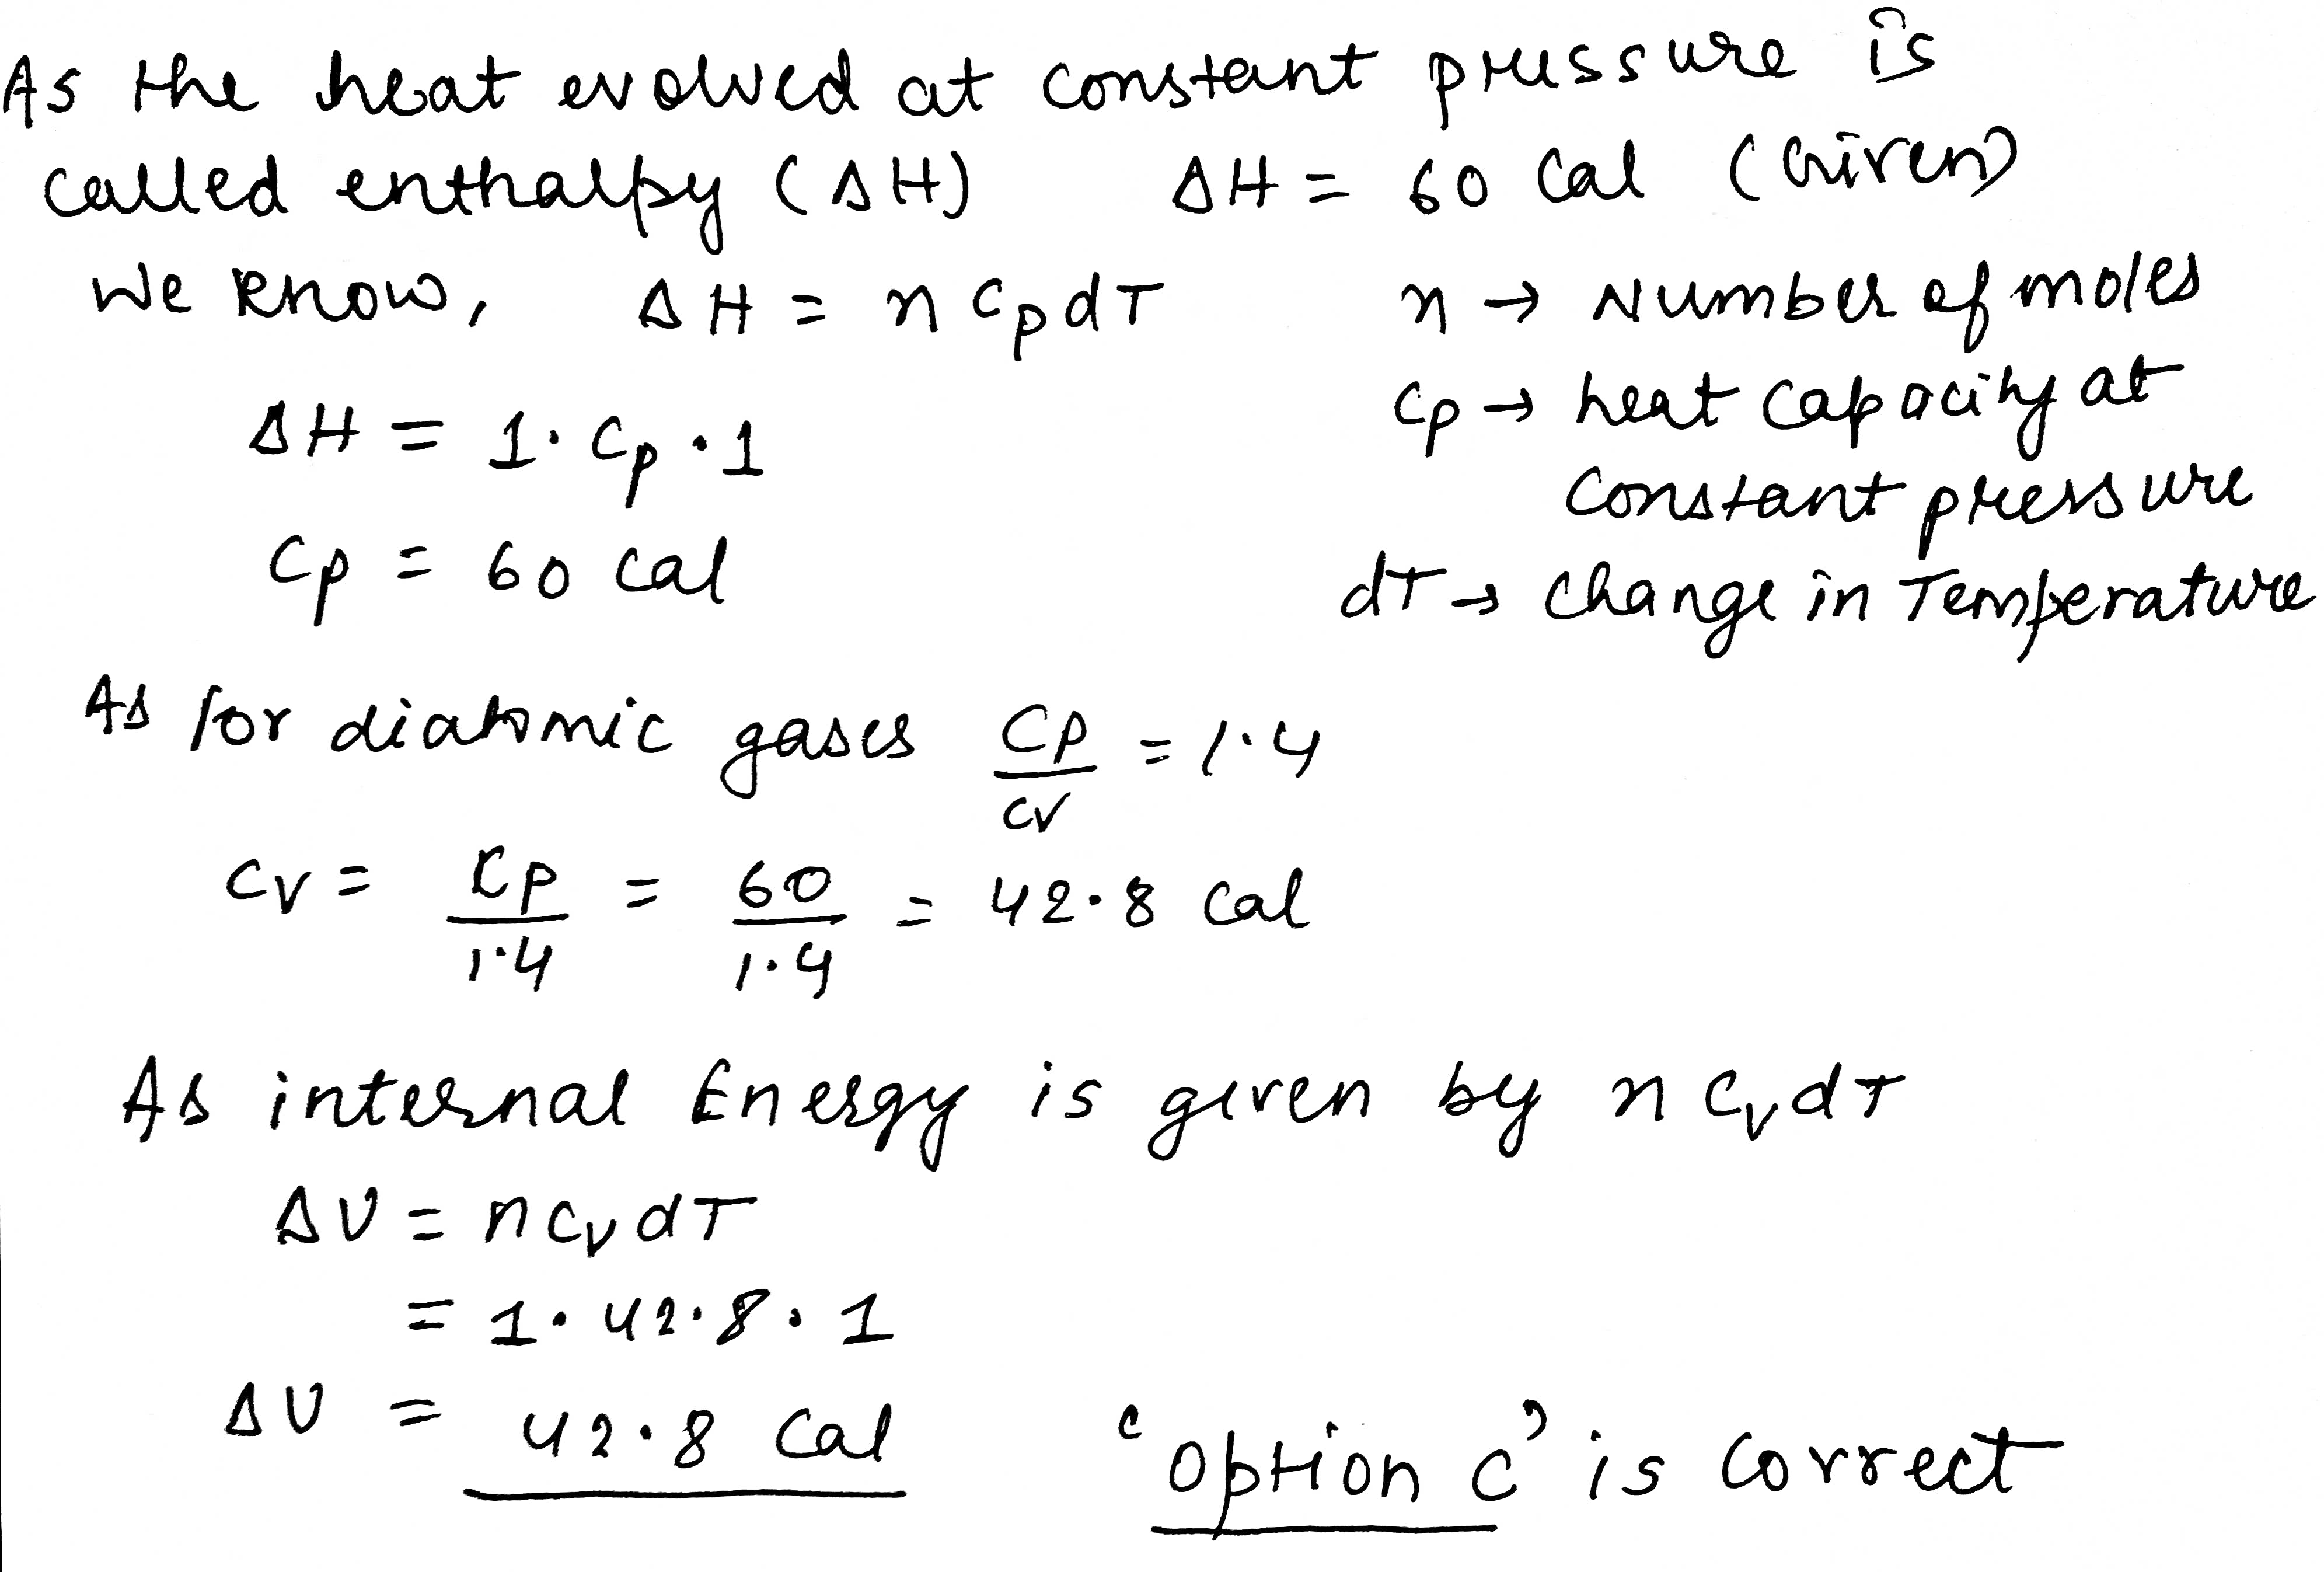 As the heat evolved at constant pressure is
called enthalpy (ΔH) ΔH = 60 Cal (Given)
We know, ΔH = n Cp dT n → Number of moles
ΔH = 1 · Cp · 1 Cp → heat capacity at
constant pressure
Cp = 60 Cal dT → Change in Temperature
As for diatomic gases Cp/Cv = 1.4
Cv = Cp/1.4 = 60/1.4 = 42.8 Cal
As internal Energy is given by n Cv dT
ΔU = n Cv dT
= 1 · 42.8 · 1
ΔU = 42.8 Cal 'option C' is correct